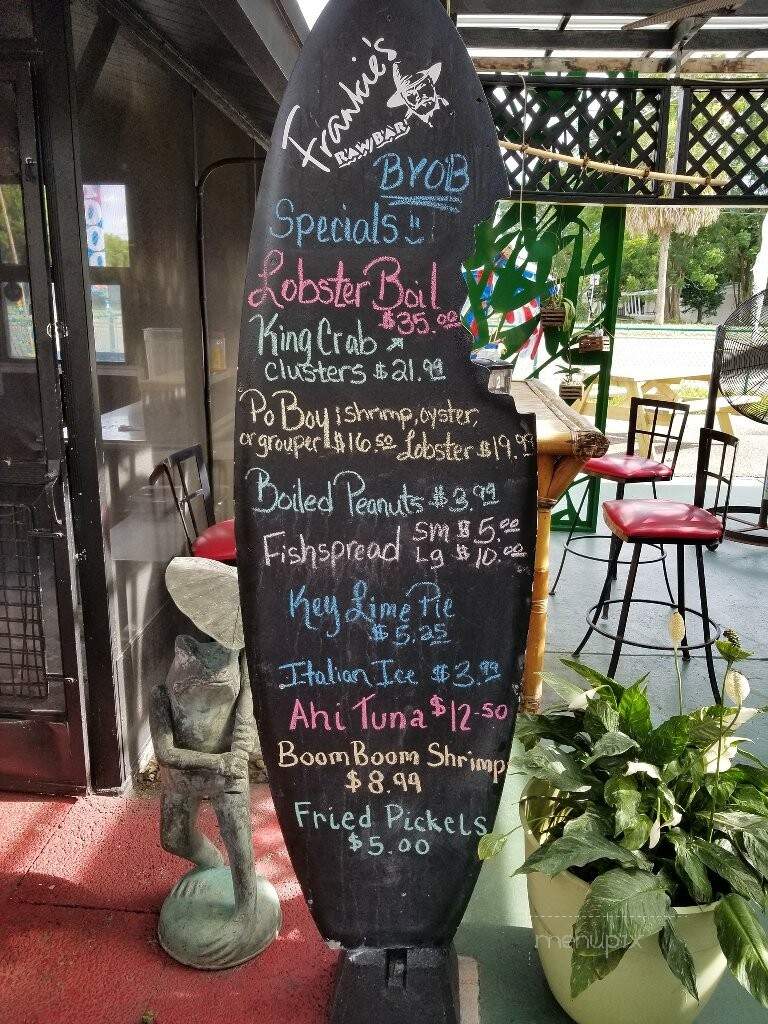 Frankie's
RAW BAR
BYOB
Specials
Lobster Boil
$35.00
King Crab
clusters $21.99
Po Boy; shrimp, oyster,
or grouper $16.50 Lobster $19.99
Boiled Peanuts $3.99
Fishspread SM $5.00
Lg $10.00
Key Lime Pie
$5.25
Italian Ice $3.99
Ahi Tuna $12.50
Boom Boom Shrimp
$8.99
Fried Pickels
$5.00
menupix